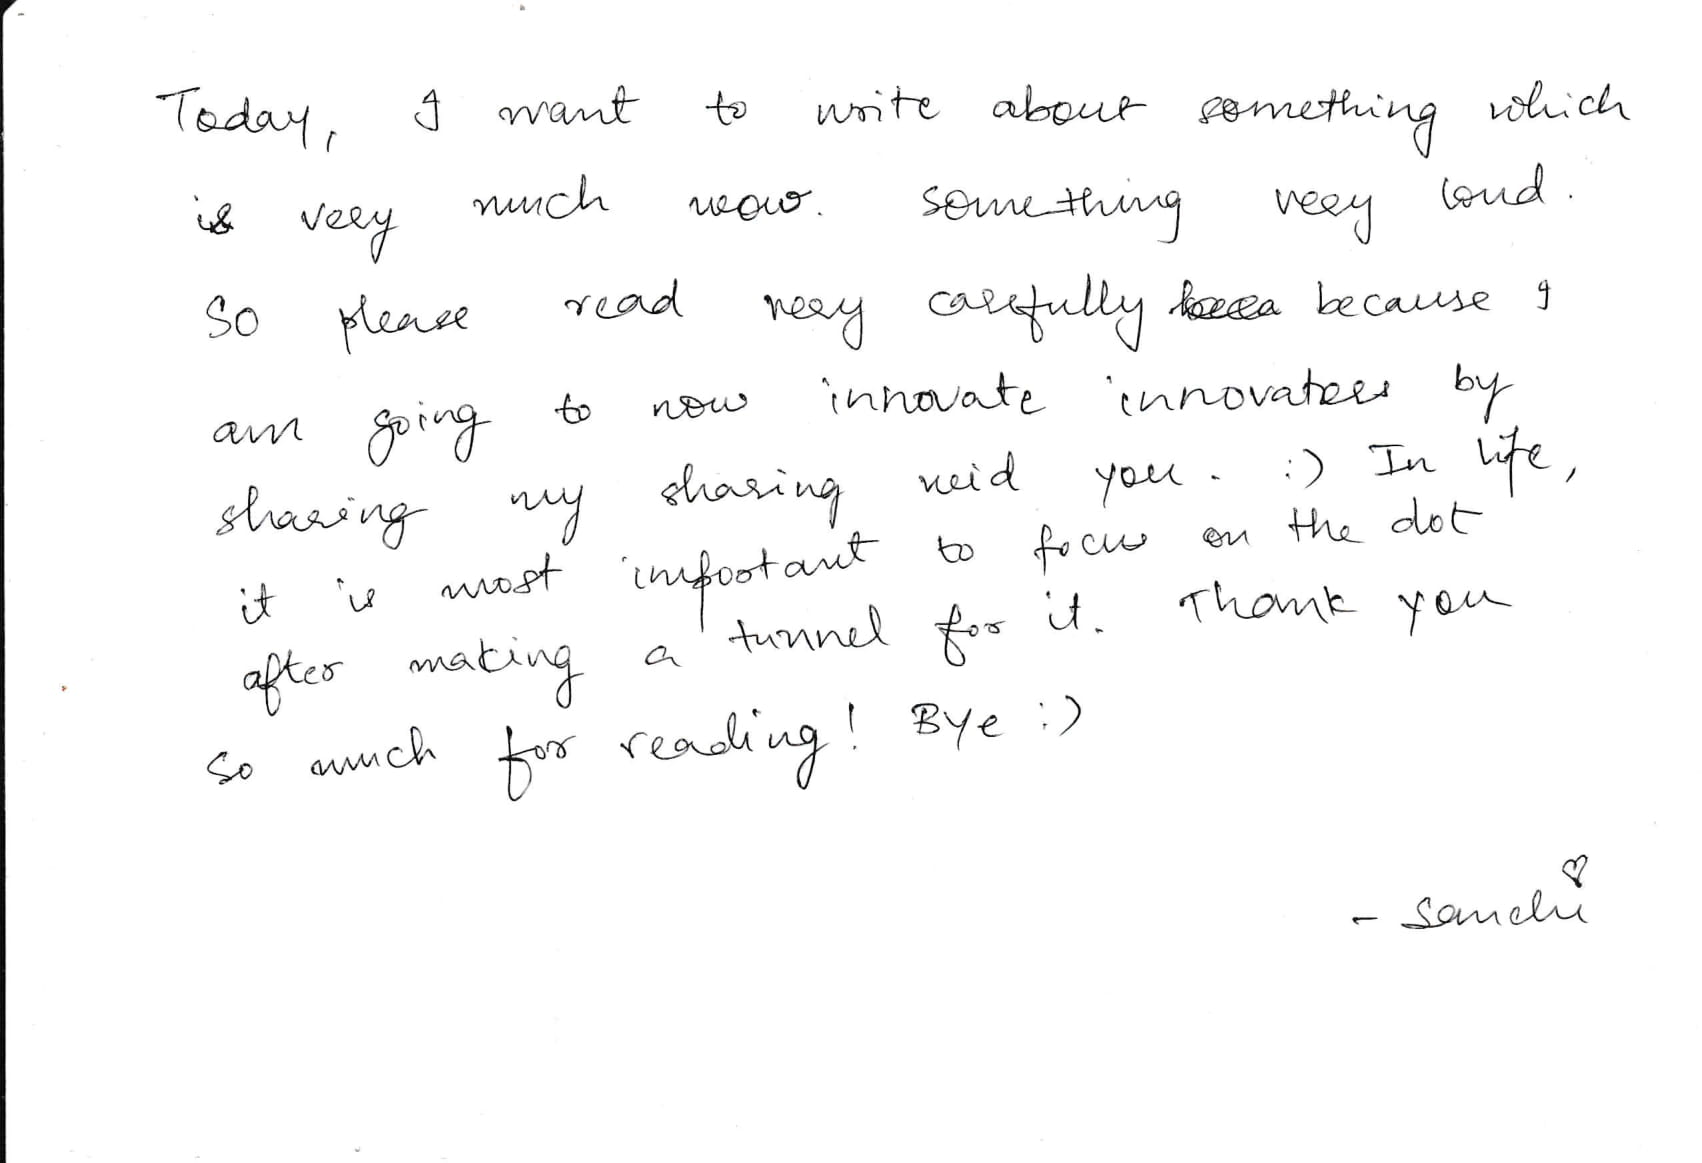 Today, I want to write about something which
is very much wow. Something very loud.
So please read very carefully because I
am going to now innovate innovatees by
sharing my sharing neid you. :) In life,
it is most important to focus on the dot
after making a tunnel for it. Thank you
so much for reading! Bye :)
- Sanchi